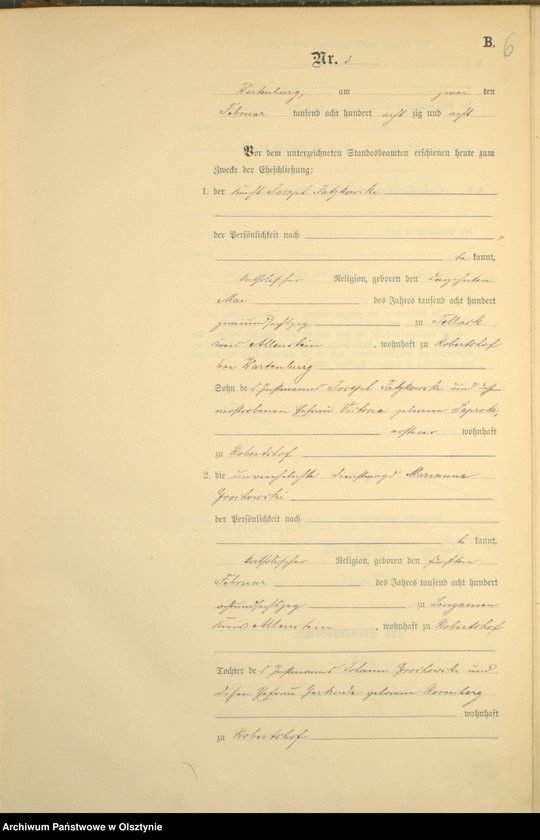 B.
6
Nr. 3
Wartenburg, am zwei ten
Februar tausend acht hundert acht zig und acht
Vor dem unterzeichneten Standesbeamten erschienen heute zum
Zwecke der Eheschließung:
1. der Knecht Joseph Jatzkowski
der Persönlichkeit nach
be kannt,
katholischer Religion, geboren den
Mai des Jahres tausend acht hundert
zweiundsechszig zu Tollack
Kreis Allenstein, wohnhaft zu Robertshof
bei Wartenburg
Sohn des Instmanns Joseph Jatzkowski und
verstorbenen Ehefrau Victoria geborene
ersterer wohnhaft
zu Robertshof
2. die unverehelichte Dienstmagd Marianna
Grochowski
der Persönlichkeit nach
be kannt,
katholischer Religion, geboren den fünften
Februar des Jahres tausend acht hundert
achtundsechszig zu Lengainen
Kreis Allenstein, wohnhaft zu Robertshof
Tochter des Instmanns Johann Grochowski und
dessen Ehefrau Gertrude geborene Rosenberg
wohnhaft
zu Robertshof
Archiwum Państwowe w Olsztynie